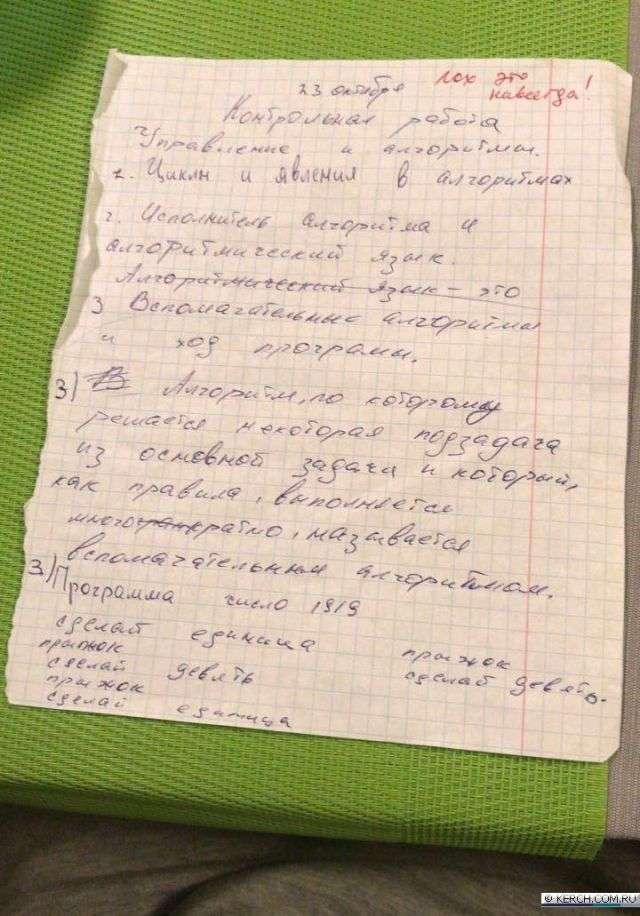 23 октября
лох это
навсегда!
Контрольная работа
Управление и алгоритмы.
1. Циклы и явления в алгоритмах
2. Исполнитель алгоритма и
алгоритмический язык.
Алгоритмический язык - это
3 Вспомагательные алгоритмы
и ход программ.
3) В Алгоритм, по которому
решается некоторая подзадача
из основной задачи и который,
как правила, выполняется
многократно, называется
вспомачательным алгоритмом.
3) Программа число 1919
сделай единица
прыжок
сделай девять
прыжок
сделай единица
прыжок
сделай девять.
© KERCH.COM.RU